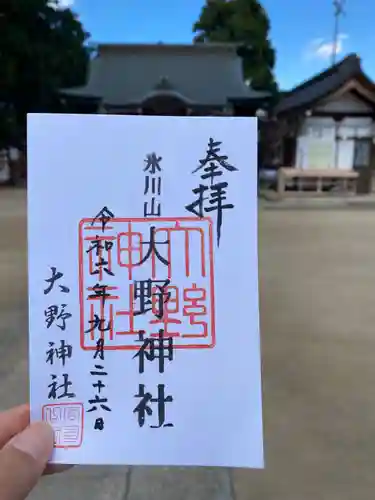 奉拝
氷川山
大野神社
令和六年九月二十六日
大野神社
大野神社